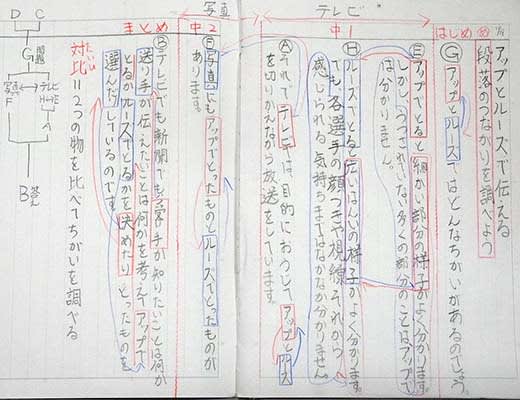 アップとルーズで伝える
段落のつながりを調べよう
テレビ
はじめ
Ⓖアップとルーズではどんなちがいがあるのでしょう。
中1
Ⓔアップでとると細かい部分の様子がよく分かります。
しかし、うつされていない多くの部分のことは、アップで
は分かりません。
Ⓗルーズでとると広いはんいの様子がよく分かります。
でも、各選手の顔つきや視線、それから
感じられる気持ちまではなかなか分かりません。
Ⓐそれでテレビでは、目的におうじてアップとルーズ
を切りかえながら放送をしています。
写真
中2
写真にもアップでとったものとルーズでとったものが
あります。
まとめ
Ⓑテレビでも新聞でも受け手が知りたいことは何か
送り手が伝えたいことは何かを考えてアップで
とるかルーズでとるかを決めたり、とったものを
選んだりしているのです。
たいひ
対比＝2つの物を比べてちがいを調べる
D C
G 問題
写真 テレビ
F H E
A
B 答え